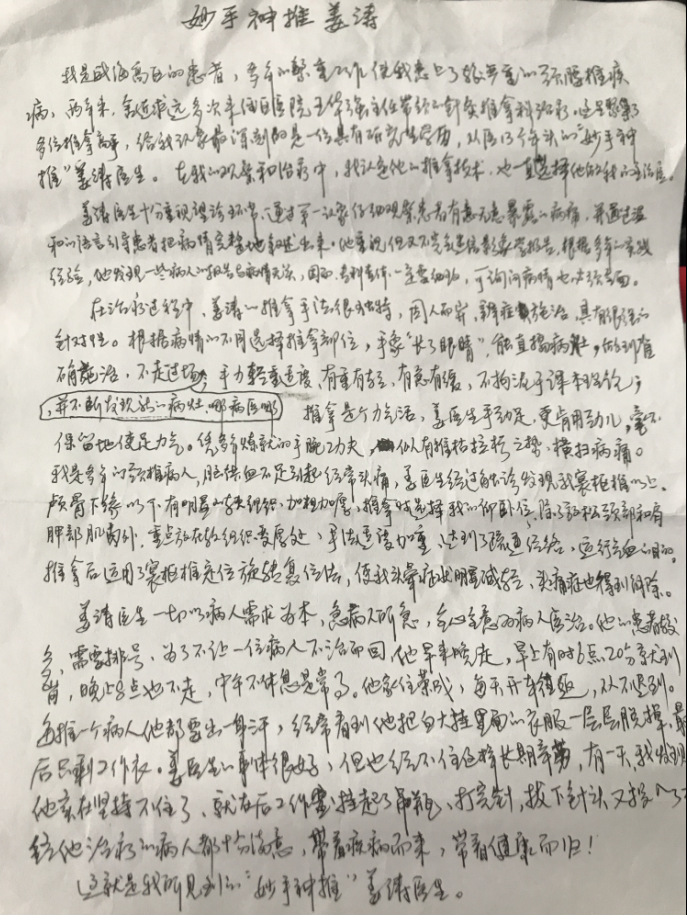 妙手神推姜涛
我是威海高区的患者，多年的繁重工作使我患上了较严重的颈腰椎疾
病，两年来，我多次来医院王华强主任带领的针灸推拿科治疗，这里聚集了
多位推拿高手，给我印象最深刻的是一位具有研究生学历，从医13个年头的“妙手神
推”姜涛医生。在我的观察和治疗中，我认定他的推拿技术，也一直选择他做我的主治医。
姜涛医生十分重视诊环节，通过第一印象仔细观察患者有意无意暴露的病痛，并通过温
和的语言引导患者把病情完整地叙述出来。他重视但又不完全迷信影像学报告，根据多年的实践
经验，他发现一些病人的报告与病情无关，因而，查体一定要细致，询问病情也必须全面。
在治疗过程中，姜涛的推拿手法很独特，因人而异，辨症施治，具有很强的
针对性。根据病情的不同选择推拿部位，手象“长了眼睛”，能直捣病灶，做到有
确施治，不走过场，手力轻重适度，有重有轻，有急有缓，不拘泥于课本理论，
并不断发现新的病灶，哪病医哪 推拿是个力气活，姜医生手劲足，更肯用劲儿，毫不
保留地使足力气。凭多年炼就的手腕功夫，似有摧枯拉朽之势，横扫病痛。
我是多年的颈椎病人，脑供血不足引起经常头痛，姜医生经过触诊发现我寰枢椎以上、
颅骨下缘以下有明显的软组织加粗加厚，推拿时选择我的仰卧位，除了放松颈部和肩
胛部肌肉外，重点放在软组织变厚处，手法适度加重，达到了疏通经络，运行气血的目的。
推拿后运用了寰枢椎定位旋转复位法，使我头晕症状明显减轻，头痛症也得到解除。
姜涛医生一切以病人需求为本，急病人所急，全心全意为病人医治。他的患者较
多，需要排号，为了不让一位病人不治而回，他早来晚走，早上有时6点20分就到
岗，晚上8点也不走，中午不休息是常事。他家住荣成，每天开车往返，从不迟到。
每推一个病人他都要出一身汗，经常看到他把白大挂里面的衣服一层层脱掉，最
后只剩工作衣。姜医生的身体很好，但也经不住这样长期辛劳，有一天，我发现
他实在坚持不住了，就在后工作室挂起了吊瓶，打完针，拔下针头又投入了工
经他治疗的病人都十分满意，带着疾病而来，带着健康而归！
这就是我所见到的“妙手神推”姜涛医生。